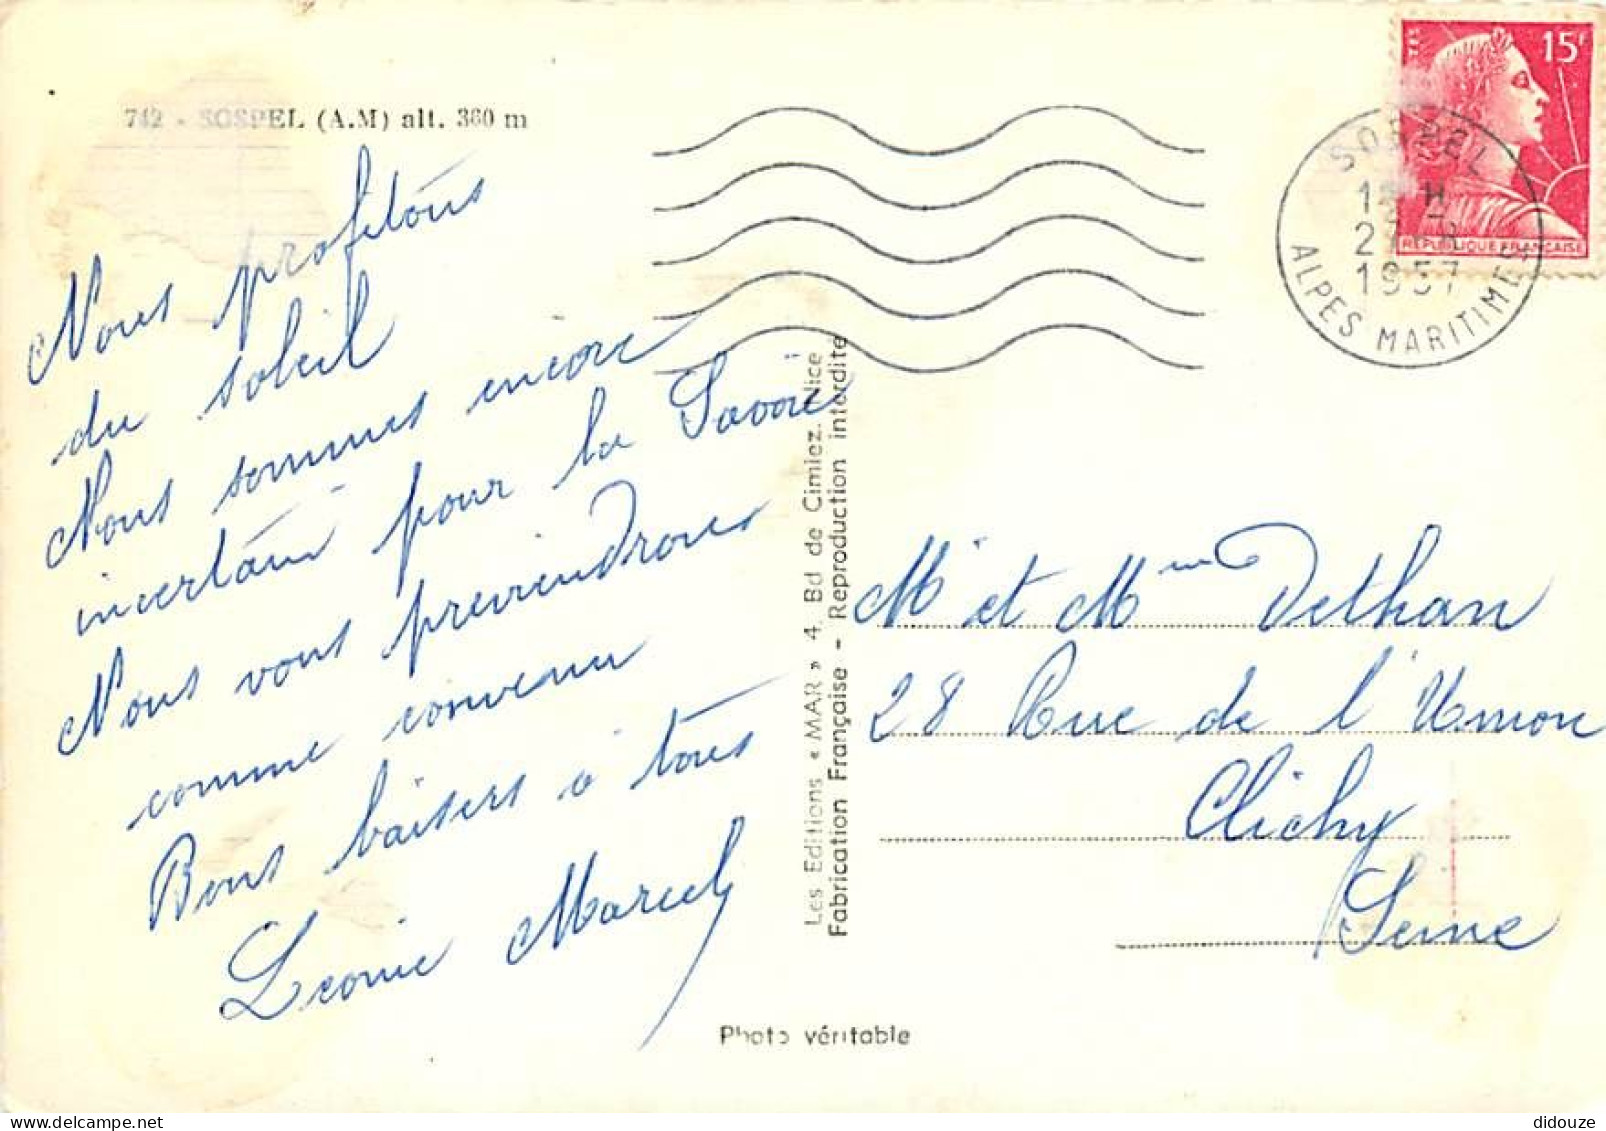 742 - SOSPEL (A.M) alt. 360 m
Nous profitons
du soleil
Nous sommes encore
incertain pour la Savoie
Nous vous previendrons
comme convenu
Bons baisers à tous
Leonie Marcel
Les Editions « MAR » 4. Bd de Cimiez. Nice
Fabrication Française - Reproduction interdite
Photo véritable
15F
REPUBLIQUE FRANÇAISE
SOSPEL
1957
ALPES MARITIMES
Mr et Mme Dethan
28 Rue de l'Union
Clichy
Seine
didouze